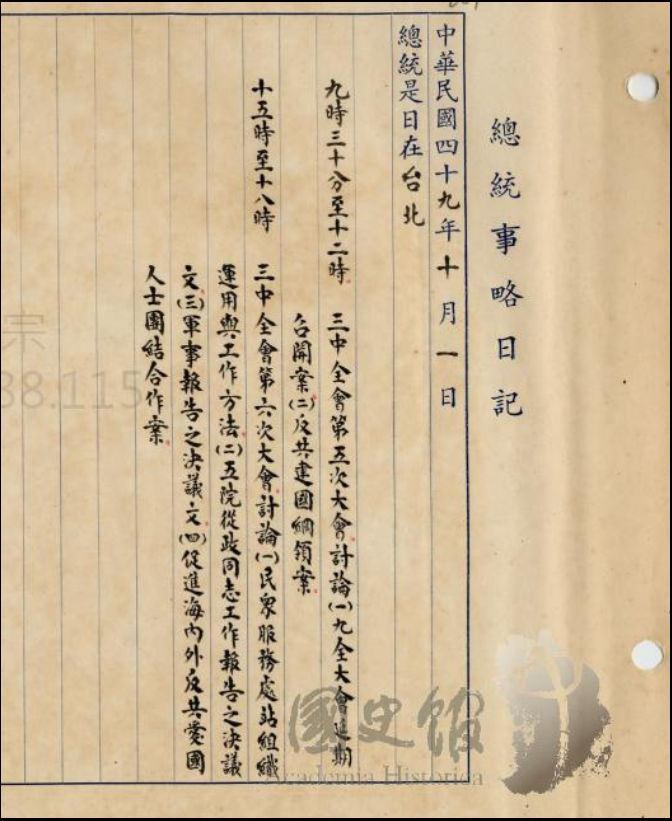 總統事略日記
中華民國四十九年十月一日
總統是日在台北
九時三十分至十二時 三中全會第五次大會討論(一)九全大會延期
召開案(二)反共建國綱領案
十五時至十八時 三中全會第六次大會討論(一)民眾服務處站組織
運用與工作方法(二)五院從政同志工作報告之決議
文(三)軍事報告之決議文(四)促進海內外反共愛國
人士團結合作案
國史館
Academia Historica
宗
88.115